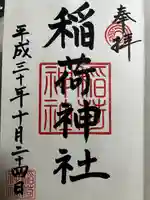 奉拝
稲荷神社
平成三十年十月二十四日